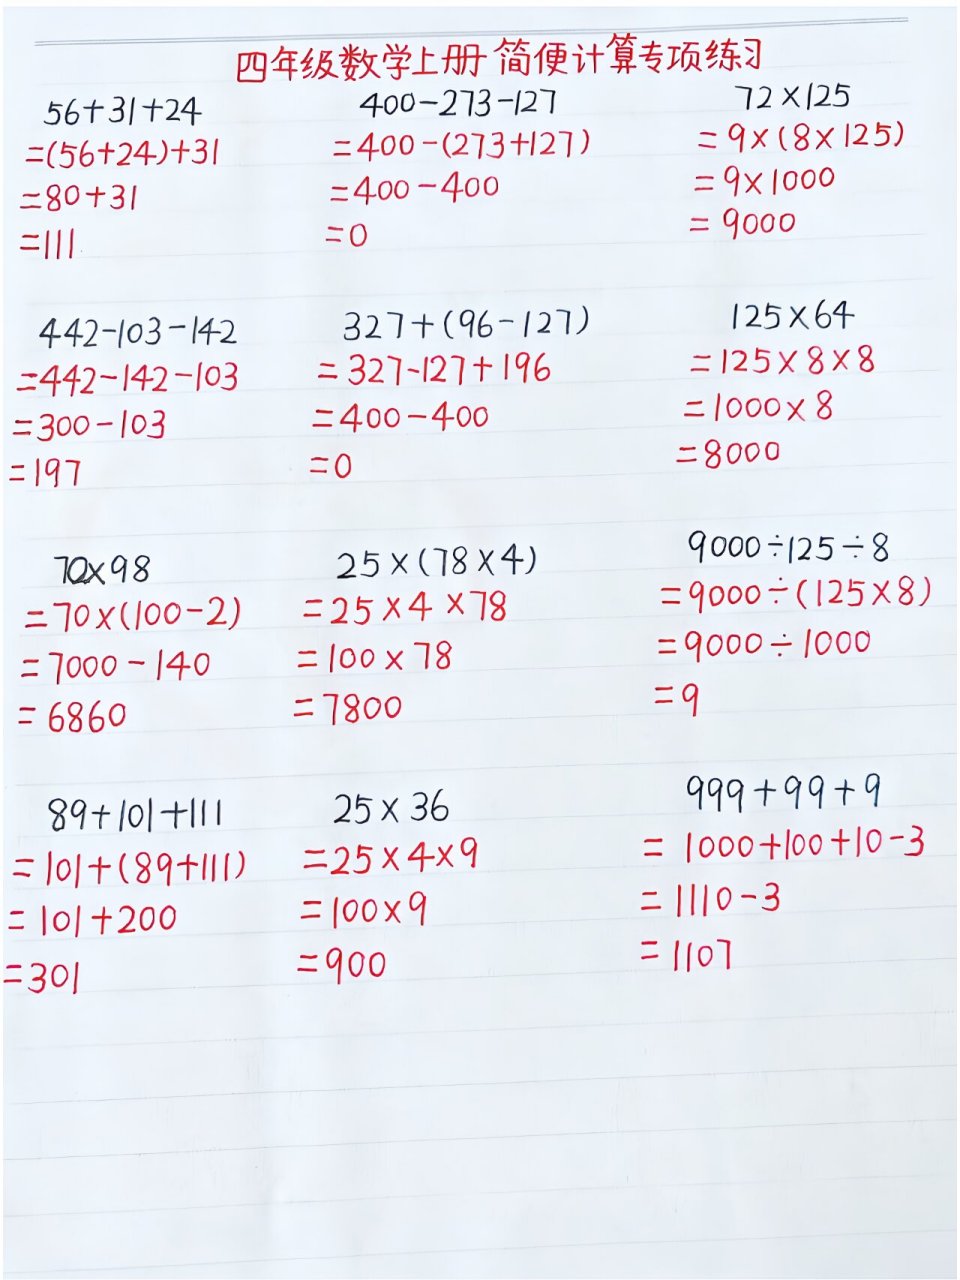 四年级数学上册 简便计算专项练习
56+31+24
=(56+24)+31
=80+31
=111
400-273-127
=400-(273+127)
=400-400
=0
72×125
=9×(8×125)
=9×1000
=9000
442-103-142
=442-142-103
=300-103
=197
327+(96-127)
=327-127+196
=400-400
=0
125×64
=125×8×8
=1000×8
=8000
70×98
=70×(100-2)
=7000-140
=6860
25×(78×4)
=25×4×78
=100×78
=7800
9000÷125÷8
=9000÷(125×8)
=9000÷1000
=9
89+101+111
=101+(89+111)
=101+200
=301
25×36
=25×4×9
=100×9
=900
999+99+9
=1000+100+10-3
=1110-3
=1107